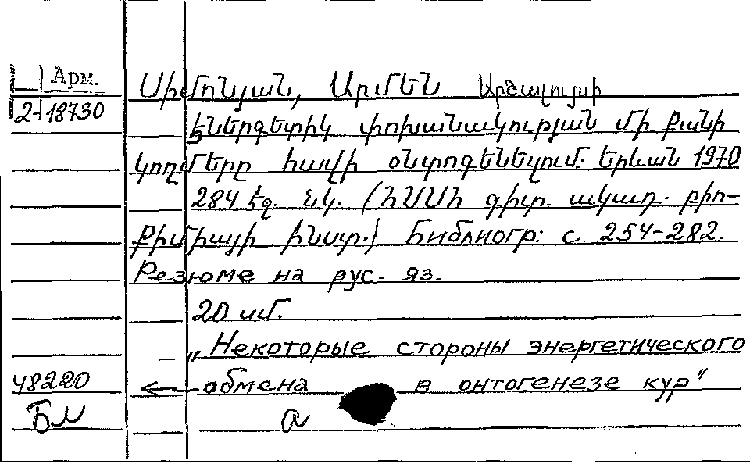 Арм.
2-18730
Սիմոնյան, Արմեն Արշալույսի
Էներգետիկ փոխանակության մի քանի
կողմերը հավի օնտոգենեզում. Երևան 1970
284 էջ. նկ. (ՀՍՍՀ գիտ. ակադ. բիո-
քիմիայի ինստ.) Библиогр: с. 254-282.
Резюме на рус. яз.
20 սմ.
„Некоторые стороны энергетического
48220 ← обмена в онтогенезе кур"
БМ а